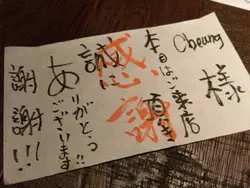 Cheung 様
本日はご来店
誠に
ありがとう!!
ございます
謝謝!!!
感謝